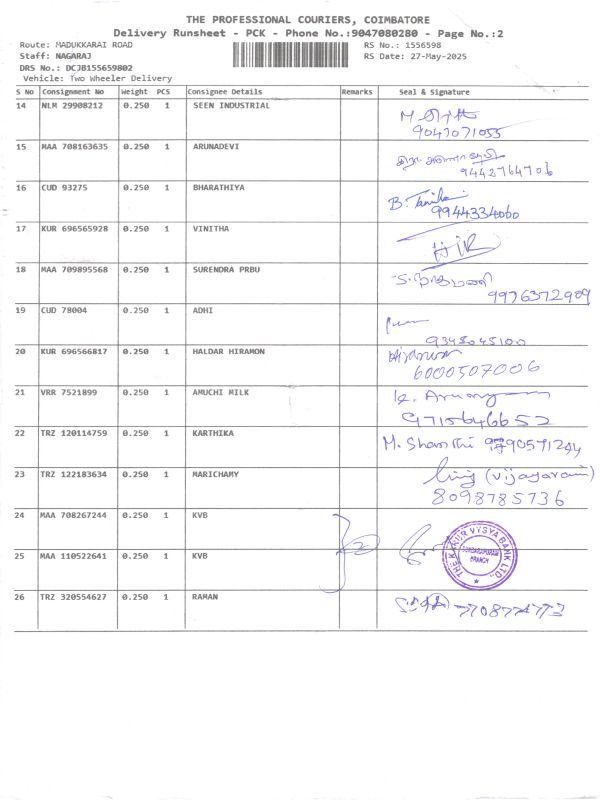 THE PROFESSIONAL COURIERS, COIMBATORE
Delivery Runsheet - PCK - Phone No.:9047080280 - Page No.:2
Route: MADUKKARAI ROAD RS No.: 1556598
Staff: NAGARAJ RS Date: 27-May-2025
DRS No.: DCJB155659802
Vehicle: Two Wheeler Delivery
S No Consignment No Weight PCS Consignee Details Remarks Seal & Signature
14 NLM 29908212 0.250 1 SEEN INDUSTRIAL
9047071055
15 MAA 708163635 0.250 1 ARUNADEVI
9442764706
16 CUD 93275 0.250 1 BHARATHIYA B.
9944334060
17 KUR 696565928 0.250 1 VINITHA
18 MAA 709895568 0.250 1 SURENDRA PRBU
9976372909
19 CUD 78004 0.250 1 ADHI
9345045100
20 KUR 696566817 0.250 1 HALDAR HIRAMON
6000507006
21 VRR 7521899 0.250 1 AMUCHI MILK
9715646652
22 TRZ 120114759 0.250 1 KARTHIKA M. Shanthi
23 TRZ 122183634 0.250 1 MARICHAMY (Vijayarani)
8098785736
24 MAA 708267244 0.250 1 KVB
THE KARUR VYSYA BANK LTD.,
SUNDARAPURAM
BRANCH
25 MAA 110522641 0.250 1 KVB
26 TRZ 320554627 0.250 1 RAMAN 7708774773